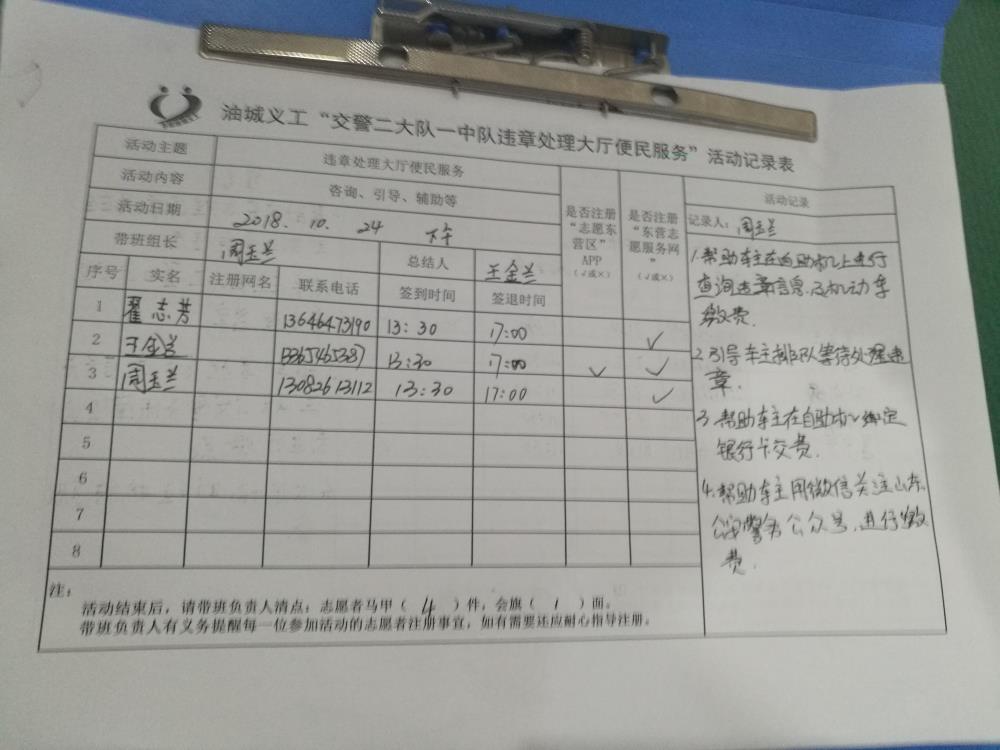 油城义工“交警二大队一中队违章处理大厅便民服务”活动记录表
活动主题 违章处理大厅便民服务
活动内容 咨询、引导、辅助等
活动日期 2018. 10. 24 下午
带班组长 周玉兰 总结人 王金兰
序号 实名 注册网名 联系电话 签到时间 签退时间
是否注册“志愿东营区”APP（√或×）
是否注册“东营志愿服务网”（√或×）
1 翟志芳 13646473190 13:30 17:00 ✓
2 王金兰 13365465387 13:30 17:00 ✓ ✓
3 周玉兰 13082613112 13:30 17:00 ✓
4
5
6
7
8
活动记录
记录人：周玉兰
1.帮助车主在自助机上进行
查询违章信息及机动车
缴费.
2.引导车主排队等待处理违
章.
3.帮助车主在自助机绑定
银行卡交费.
4.帮助车主用微信关注山东
公安警务公众号,进行缴
费.
注：
活动结束后，请带班负责人清点：志愿者马甲（ 4 ）件，会旗（ 1 ）面。
带班负责人有义务提醒每一位参加活动的志愿者注册事宜，如有需要还应耐心指导注册。